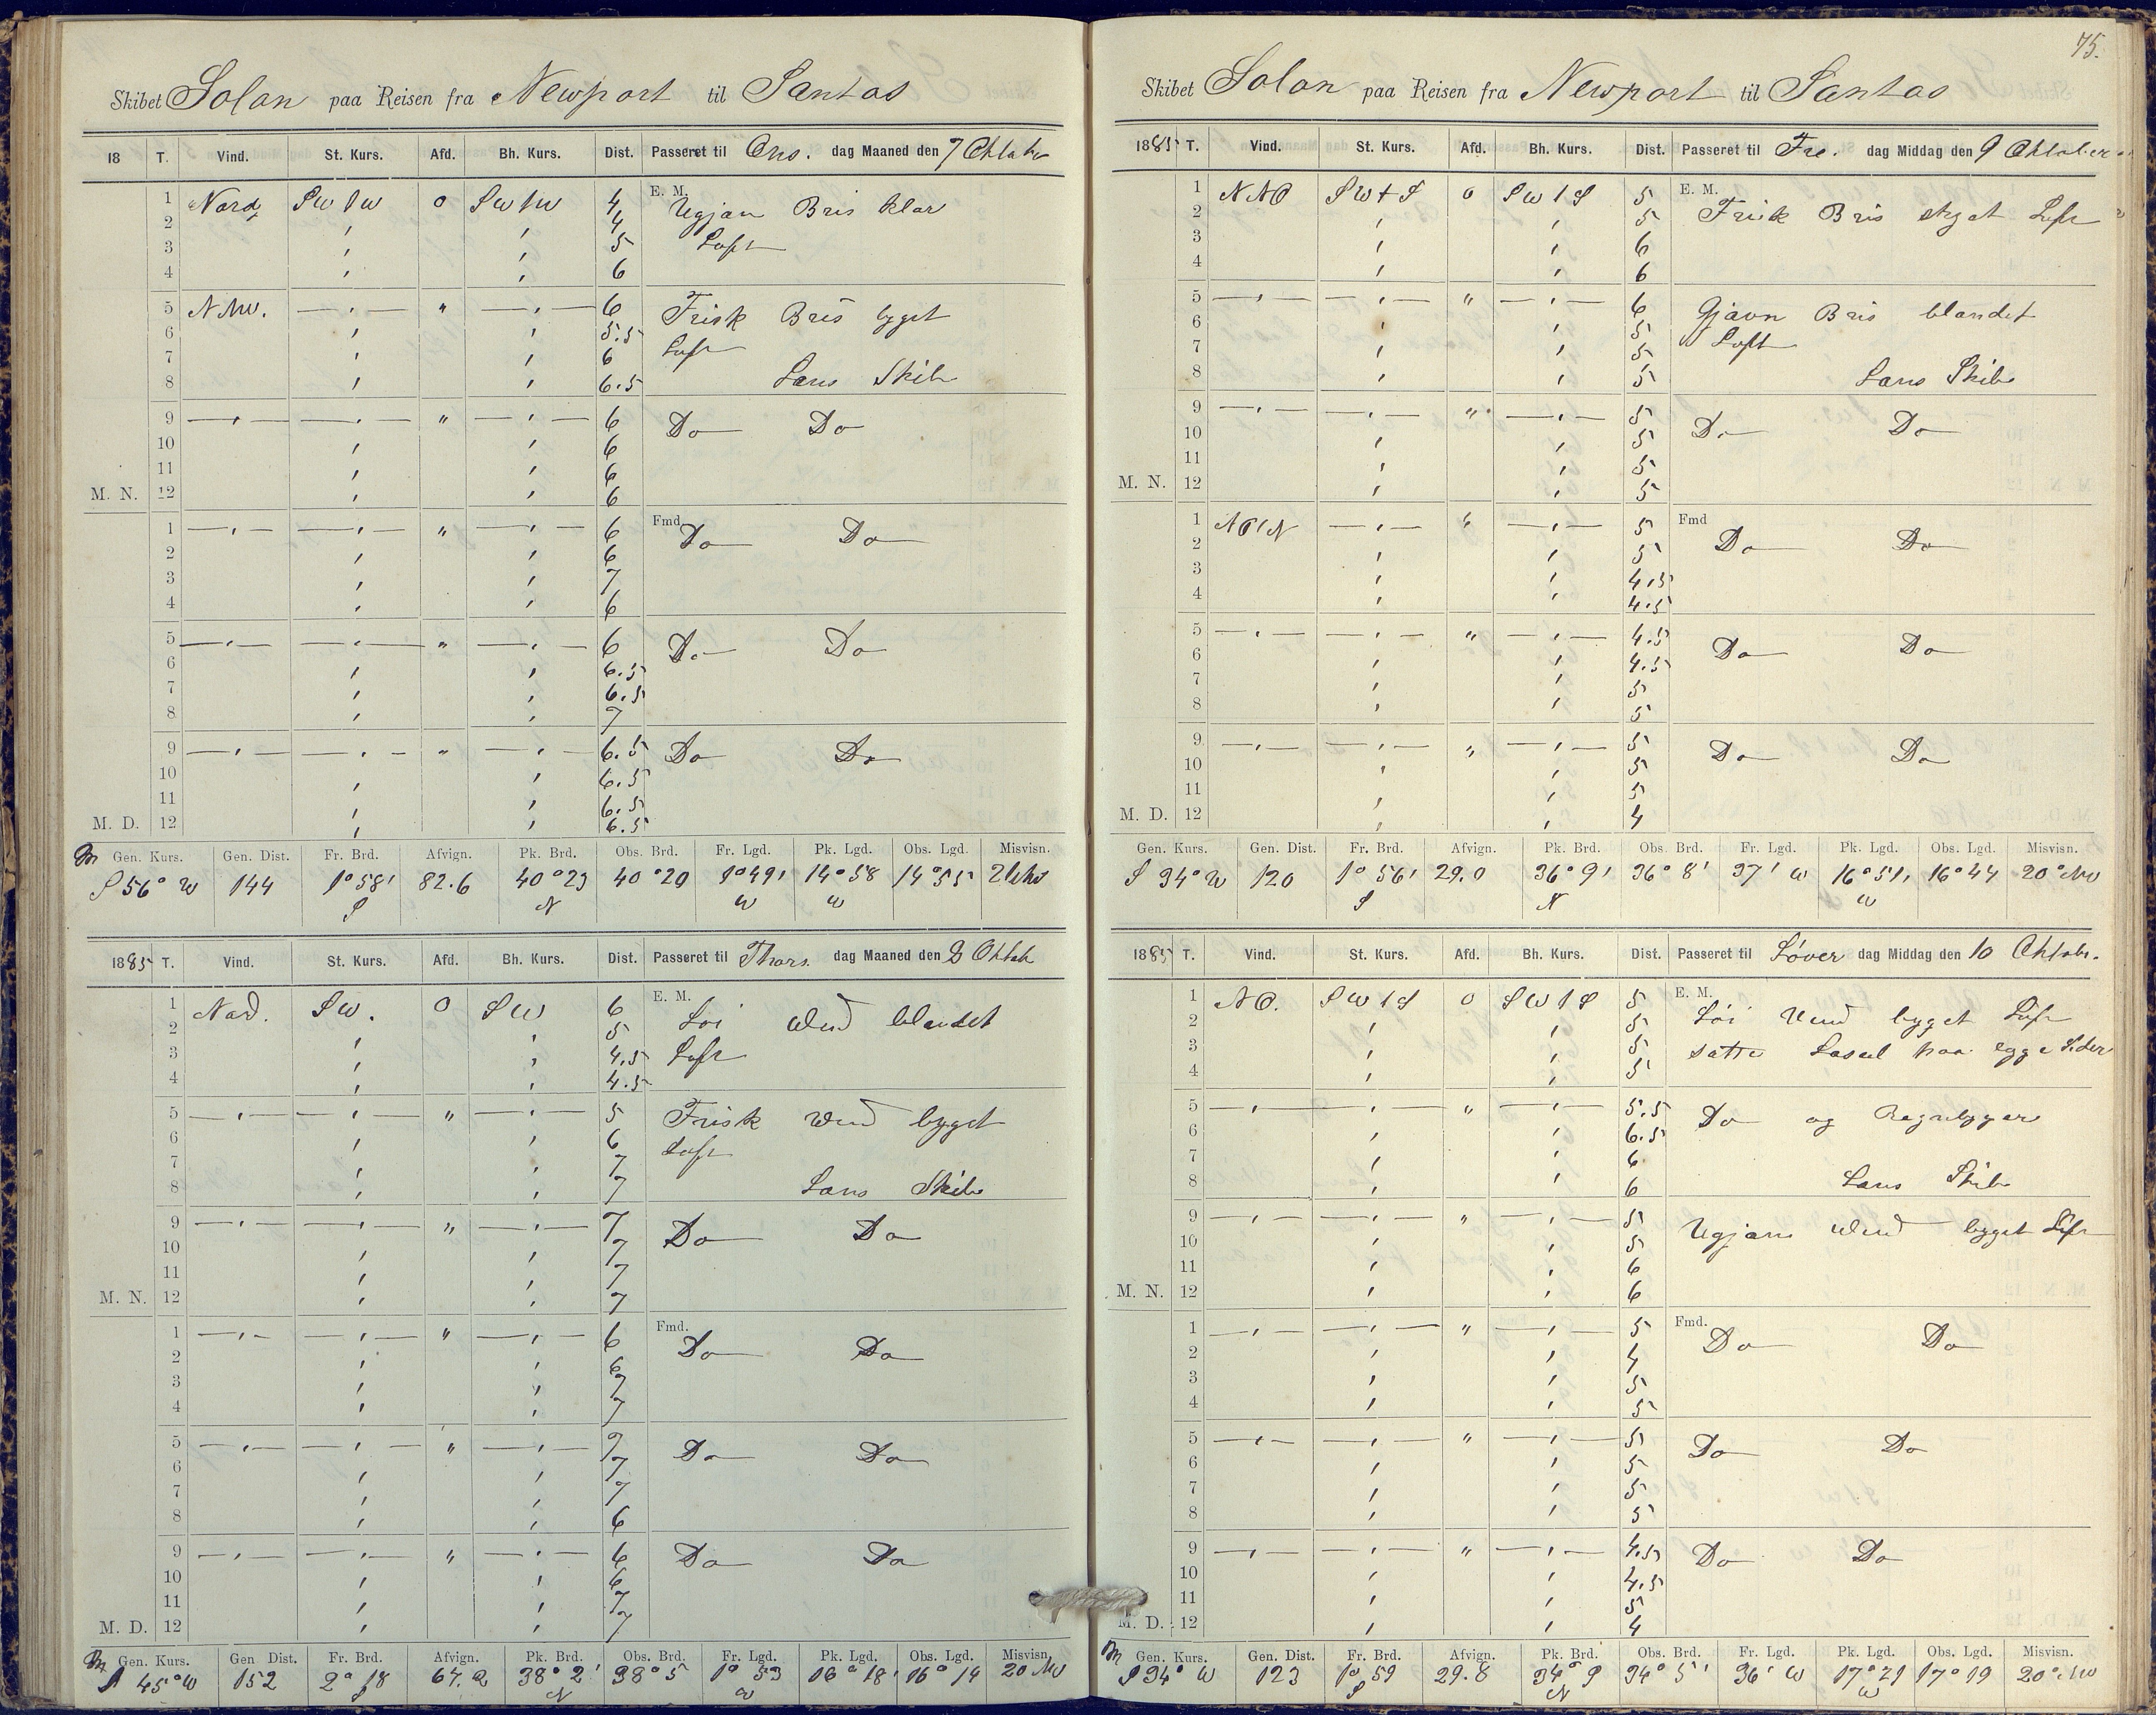 75.
Skibet Solon paa Reisen fra Newport til Santos
18 T. Vind. St. Kurs. Afd. Bh. Kurs. Dist. Passeret til Ons. dag Maaned den 7 Oktobr
E. M.
1 Nord SW1W 0 SW1W 4 Ugjæn Bris klar
2 ' ' 4
3 ' ' 5 Luft
4 ' ' 6
5 NNW. — ' — " — ' — 6 Frisk Bris byget
6 ' ' 5.5 Luft
7 ' ' 6
8 ' ' 6.5 Lans Skib
9 — ' — — ' — " — ' — 6 Do Do
10 ' ' 6
11 ' ' 6
M. N. 12 ' ' 6
Fmd.
1 — ' — — ' — " — ' — 6 Do Do
2 ' ' 6
3 ' ' 7
4 ' ' 6
5 — ' — — ' — " — ' — 6 Do Do
6 ' ' 6.5
7 ' ' 6.5
8 ' ' 7
9 — ' — — ' — " — ' — 6.5 Do Do
10 ' ' 6.5
11 ' ' 6.5
M. D. 12 ' ' 6.5
Gen. Kurs. Gen. Dist. Fr. Brd. Afvign. Pk. Brd. Obs. Brd. Fr. Lgd. Pk. Lgd. Obs. Lgd. Misvisn.
S 56° W 144 1° 58' 82.6 40° 23 40° 20 1° 49' 14° 58 14° 55
S N W W
1885 T. Vind. St. Kurs. Afd. Bh. Kurs. Dist. Passeret til Thors. dag Maaned den 8 Oktob
E. M.
1 Nord. SW. 0 SW 6 Løi Vind blandet
2 ' ' 5
3 ' ' 4.5 Luft
4 ' ' 4.5
5 — ' — — ' — " — ' — 5 Frisk Vind byget
6 ' ' 6 Luft
7 ' ' 7
8 ' ' 7 Lans Skib
9 — ' — — ' — " — ' — 7 Do Do
10 ' ' 7
11 ' ' 7
M. N. 12 ' ' 7
Fmd.
1 — ' — — ' — " — ' — 6 Do Do
2 ' ' 6
3 ' ' 7
4 ' ' 7
5 — ' — — ' — " — ' — 7 Do Do
6 ' ' 7
7 ' ' 7
8 ' ' 6
9 — ' — — ' — " — ' — 6 Do Do
10 ' ' 6
11 ' ' 7
M. D. 12 ' ' 7
Gen. Kurs. Gen Dist. Fr. Brd. Afvign. Pk. Brd. Obs. Brd. Fr. Lgd. Pk. Lgd. Obs. Lgd. Misvisn.
S 45° W 152 2° 18 67.2 38° 2' 38° 5 1° 53 16° 18' 16° 14 20 NW
S N W
Skibet Solon paa Reisen fra Newport til Santos
1885 T. Vind. St. Kurs. Afd. Bh. Kurs. Dist. Passeret til Fre. dag Middag den 9 Oktober
E. M.
1 NNO SW1S 0 SW1S 5 Frisk Bris skyet Luft
2 ' ' 5
3 ' ' 6
4 ' ' 6
5 — ' — — ' — " — ' — 6 Gjævn Bris blandet
6 ' ' 5
7 ' ' 5 Luft
8 ' ' 5 Lans Skib
9 — ' — — ' — " — ' — 5 Do Do
10 ' ' 5
11 ' ' 5
M. N. 12 ' ' 5
Fmd
1 NO1N — ' — " — ' — 5 Do Do
2 ' ' 5
3 ' ' 4.5
4 ' ' 4.5
5 — ' — — ' — " — ' — 4.5 Do Do
6 ' ' 4.5
7 ' ' 5
8 ' ' 5
9 — ' — — ' — " — ' — 5 Do Do
10 ' ' 5
11 ' ' 5
M. D. 12 ' ' 4
Gen. Kurs. Gen. Dist. Fr. Brd. Afvign. Pk. Brd. Obs. Brd. Fr. Lgd. Pk. Lgd. Obs. Lgd. Misvisn.
S 34° W 120 1° 56' 29.0 36° 9' 36° 8' 37' W 16° 51' 16° 44 20° NW
S N W
1885 T. Vind. St. Kurs. Afd. Bh. Kurs. Dist. Passeret til Løver dag Middag den 10 Oktobr.
E. M.
1 NO. SW1S 0 SW1S 5 Løi Vind byget Luft
2 ' ' 5
3 ' ' 5 satte Læseil paa begge Sider
4 ' ' 5
5 — ' — — ' — " — ' — 5.5 Do og Regnbyger
6 ' ' 6.5
7 ' ' 6
8 ' ' 6 Lans Skib
9 — ' — — ' — " — ' — 5 Ugjævn Vind bygget Luft
10 ' ' 5
11 ' ' 6
M. N. 12 ' ' 6
Fmd.
1 — ' — — ' — " — ' — 5 Do Do
2 ' ' 4
3 ' ' 5
4 ' ' 5
5 — ' — — ' — " — ' — 5 Do Do
6 ' ' 5
7 ' ' 5
8 ' ' 5
9 — ' — — ' — " — ' — 4.5 Do Do
10 ' ' 4.5
11 ' ' 5
M. D. 12 ' ' 4
Gen. Kurs. Gen. Dist. Fr. Brd. Afvign. Pk. Brd. Obs. Brd. Fr. Lgd. Pk. Lgd. Obs. Lgd. Misvisn.
S 34° W 123 1° 59 29.8 34° 9 34° 5' 36' W 17° 21 17° 19 20° NW
S N W